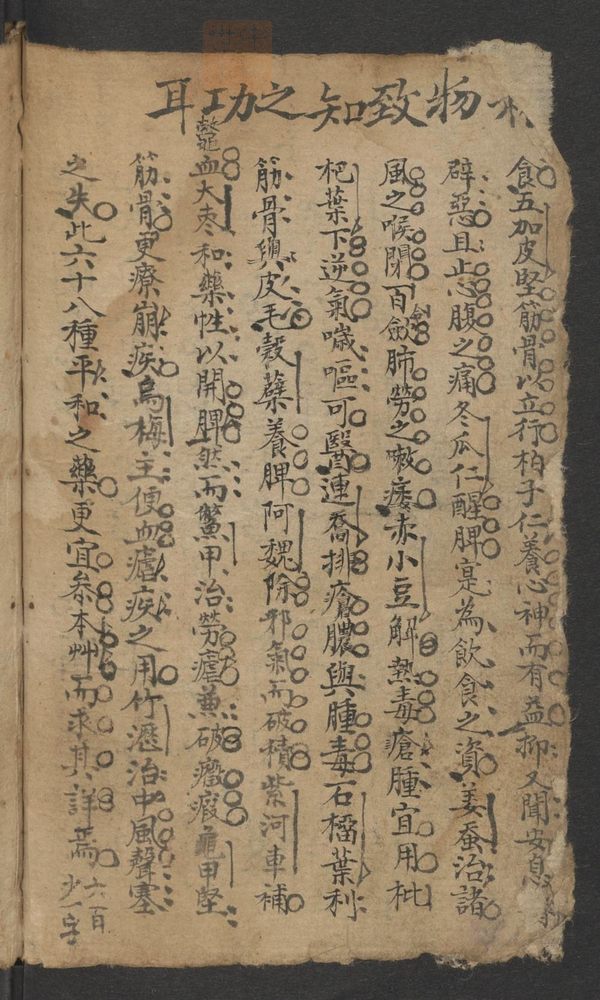 物致知之功耳
食五加皮堅筋骨以立行柏子仁養心神而有益抑又聞安息
辟惡且止心腹之痛冬瓜仁醒脾寔為飲食之資姜蚕治諸
風之喉閉百劔合肺勞之嗽痿赤小豆解熱毒瘡腫宜用枇
杷葉下逆氣噦嘔可醫連喬排瘡膿與腫毒石楠葉利
筋骨與皮毛穀蘗養脾阿魏除邪氣而破積紫河車補
血大枣和藥性以開脾然而鱉甲治勞瘧兼破癥瘕龜甲堅
筋骨更療崩疾烏梅主便血瘧疾之用竹瀝治中風聲塞
之失此六十八種平和之藥更宜叅本艸而求其詳焉
六百
少一字